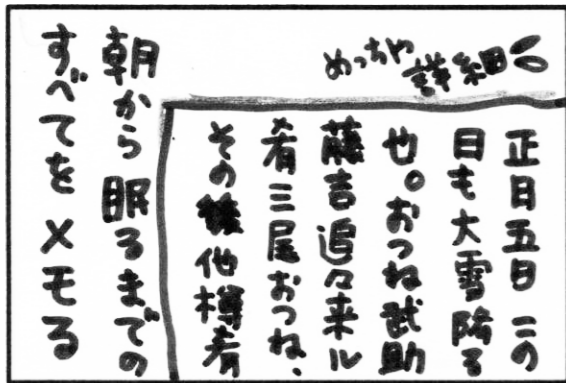 めっちゃ詳細
正日五日 この
日も大雪降る
也。おつね武助
藤吉追々来ル
肴三尾おつね、
その後他樽肴
朝から眠るまでの
すべてをメモる